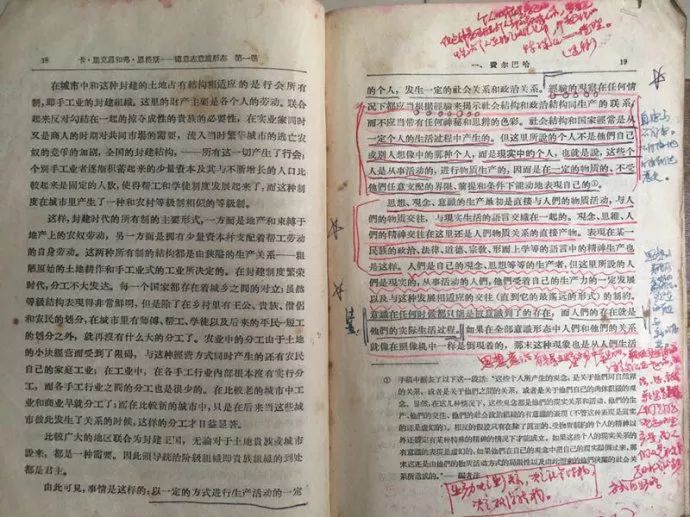 18 卡·馬克思和弗·恩格斯——德意志意識形态 第一卷
在城市中和这种封建的土地占有結构相适应的是行会所有
制,即手工业的封建組織。这里的財产主要是各个人的劳动。联合
起来反对勾结在一起的掠夺成性的貴族的必要性,在实业家同时
又是商人的时期对共同市場的需要,流入当时繁华城市的逃亡农
奴的竞爭的加剧,全国的封建結构,——所有这一切产生了行会;
个別手工业者逐漸积蓄起来的少量資本及其与不断增长的人口比
較起来是固定的人数,使得帮工和学徒制度发展起来了,而这种制
度在城市里产生了一种和农村等級制相似的等級制。
这样,封建时代的所有制的主要形式,一方面是地产和束縛于
地产上的农奴劳动,另一方面是拥有少量資本并支配着帮工劳动
的自身劳动。这两种所有制的結构都是由狹隘的生产关系——粗
陋原始的土地耕作和手工业式的工业所决定的。在封建制度繁荣
时代,分工不大发达。每一个国家都存在着城乡之間的对立;虽然
等級結构表現得非常鮮明,但是除了在乡村里有王公、貴族、僧侶
和农民的划分,在城市里有师傅、帮工、学徒以及后来的平民-短工
的划分之外,就再沒有什么大的分工了。农业中的分工由于土地
的小块經营而受到了阻碍,与这种經营方式同时产生的还有农民
自己的家庭工业;在工业中,在各手工业行內部根本沒有实行分
工,而各手工行业之間的分工也是很少的。在比較老的城市中工
业和商业早就分工了;而在比較新的城市中,只是在后来当这些城
市彼此发生了关系的时候,这样的分工才日益显著。
比較广大的地区联合为封建王国,无論对于土地貴族或城市
說来,都是一种需要。因此領导統治阶級組織即貴族組織的到处
都是君主。
由此可見,事情是这样的:以一定的方式进行生产活动的一定
一、費尔巴哈 19
的个人,发生一定的社会关系和政治关系。經驗的观察在任何情
况下都应当根据經驗来揭示社会結构和政治結构同生产的联系,
而不应当带有任何神秘和思辨的色彩。社会結构和国家經常是从
一定个人的生活过程中产生的。但这里所說的个人不是他們自己
或別人想像中的那种个人,而是現实中的个人,也就是說,这些个
人是从事活动的,进行物质生产的,因而是在一定的物质的、不受
他們任意支配的界限、前提和条件下能动地表現自己的①。
思想、观念、意識的生产最初是直接与人們的物质活动,与人
們的物质交往,与現实生活的語言交織在一起的。观念、思維、人
們的精神交往在这里还是人們物质关系的直接产物。表現在某一
民族的政治、法律、道德、宗教、形而上学等的語言中的精神生产也
是这样。人們是自己的观念、思想等等的生产者,但这里所說的人
們是現实的,从事活动的人們,他們受着自己的生产力的一定发展
以及与这种发展相适应的交往(直到它的最遙远的形式)的制約。
意識在任何时候都只能是被意識到了的存在,而人們的存在就是
他們的实际生活过程。如果在全部意識形态中人們和他們的关系
就像在照像机中一样是倒現着的,那末这种現象也是从人們生活
① 手稿中刪去了以下这一段話:“这些个人所产生的观念,是关于他們同自然界
的关系,或者是关于他們之間的关系,或者是关于他們自己的肉体組織的观
念。显然,在这几种情况下,这些观念都是他們的現实关系和活动、他們的生
产、他們的交往、他們的社会政治組織的有意識的表現(不管这种表現是真实
的还是虛幻的)。相反的假設只有在除了現实的、受物质制約的个人的精神以
外还假定有某种特殊的精神的情况下才能成立。如果这些个人的現实关系的
有意識的表現是虛幻的,如果他們在自己的观念中把自己的現实顛倒过来,那
末这还是由他們的物质活动方式的局限性以及由此而来的他們狹隘的社会关
系所造成的。”——編者注